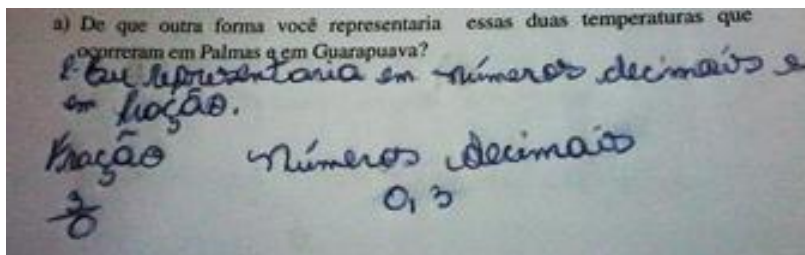 a) De que outra forma você representaria essas duas temperaturas que
ocorreram em Palmas e em Guarapuava?
R- Eu representaria em números decimais e
em fração.
Fração números decimais
3/0 0,3